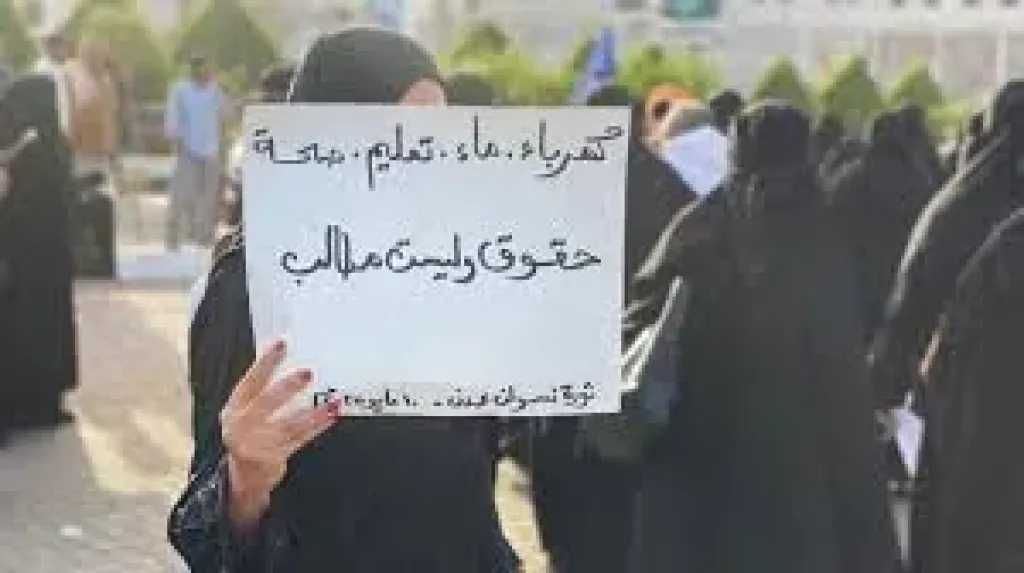 كهرباء . ماء . تعليم . صحة
حقوق وليست مطالب
ثورة نسوان عدن - ١٠ مايو